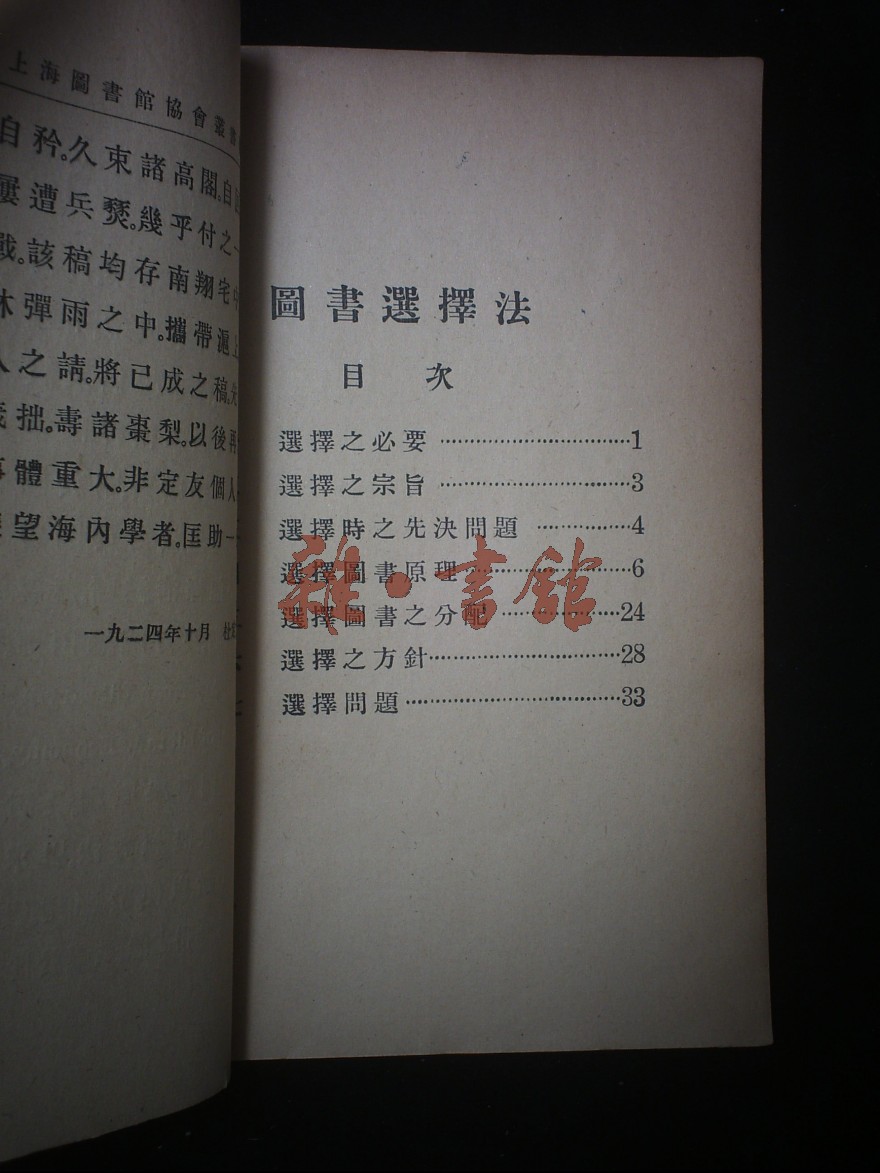 上海圖書館協會叢書
自矜。久束諸高閣。自
屢遭兵燹。幾乎付之一
戰。該稿均存南翔宅中
林彈雨之中。攜帶滬上
人之請。將已成之稿。先
拙。壽諸棗梨。以後再
體重大。非定友個人
望海內學者。匡助一
一九二四年十月 杜
圖書選擇法
目 次
選擇之必要 ································1
選擇之宗旨 ································3
選擇時之先決問題 ················4
選擇圖書原理 ························6
選擇圖書之分配 ····················24
選擇之方針 ································28
選擇問題 ····································33
雜·書館